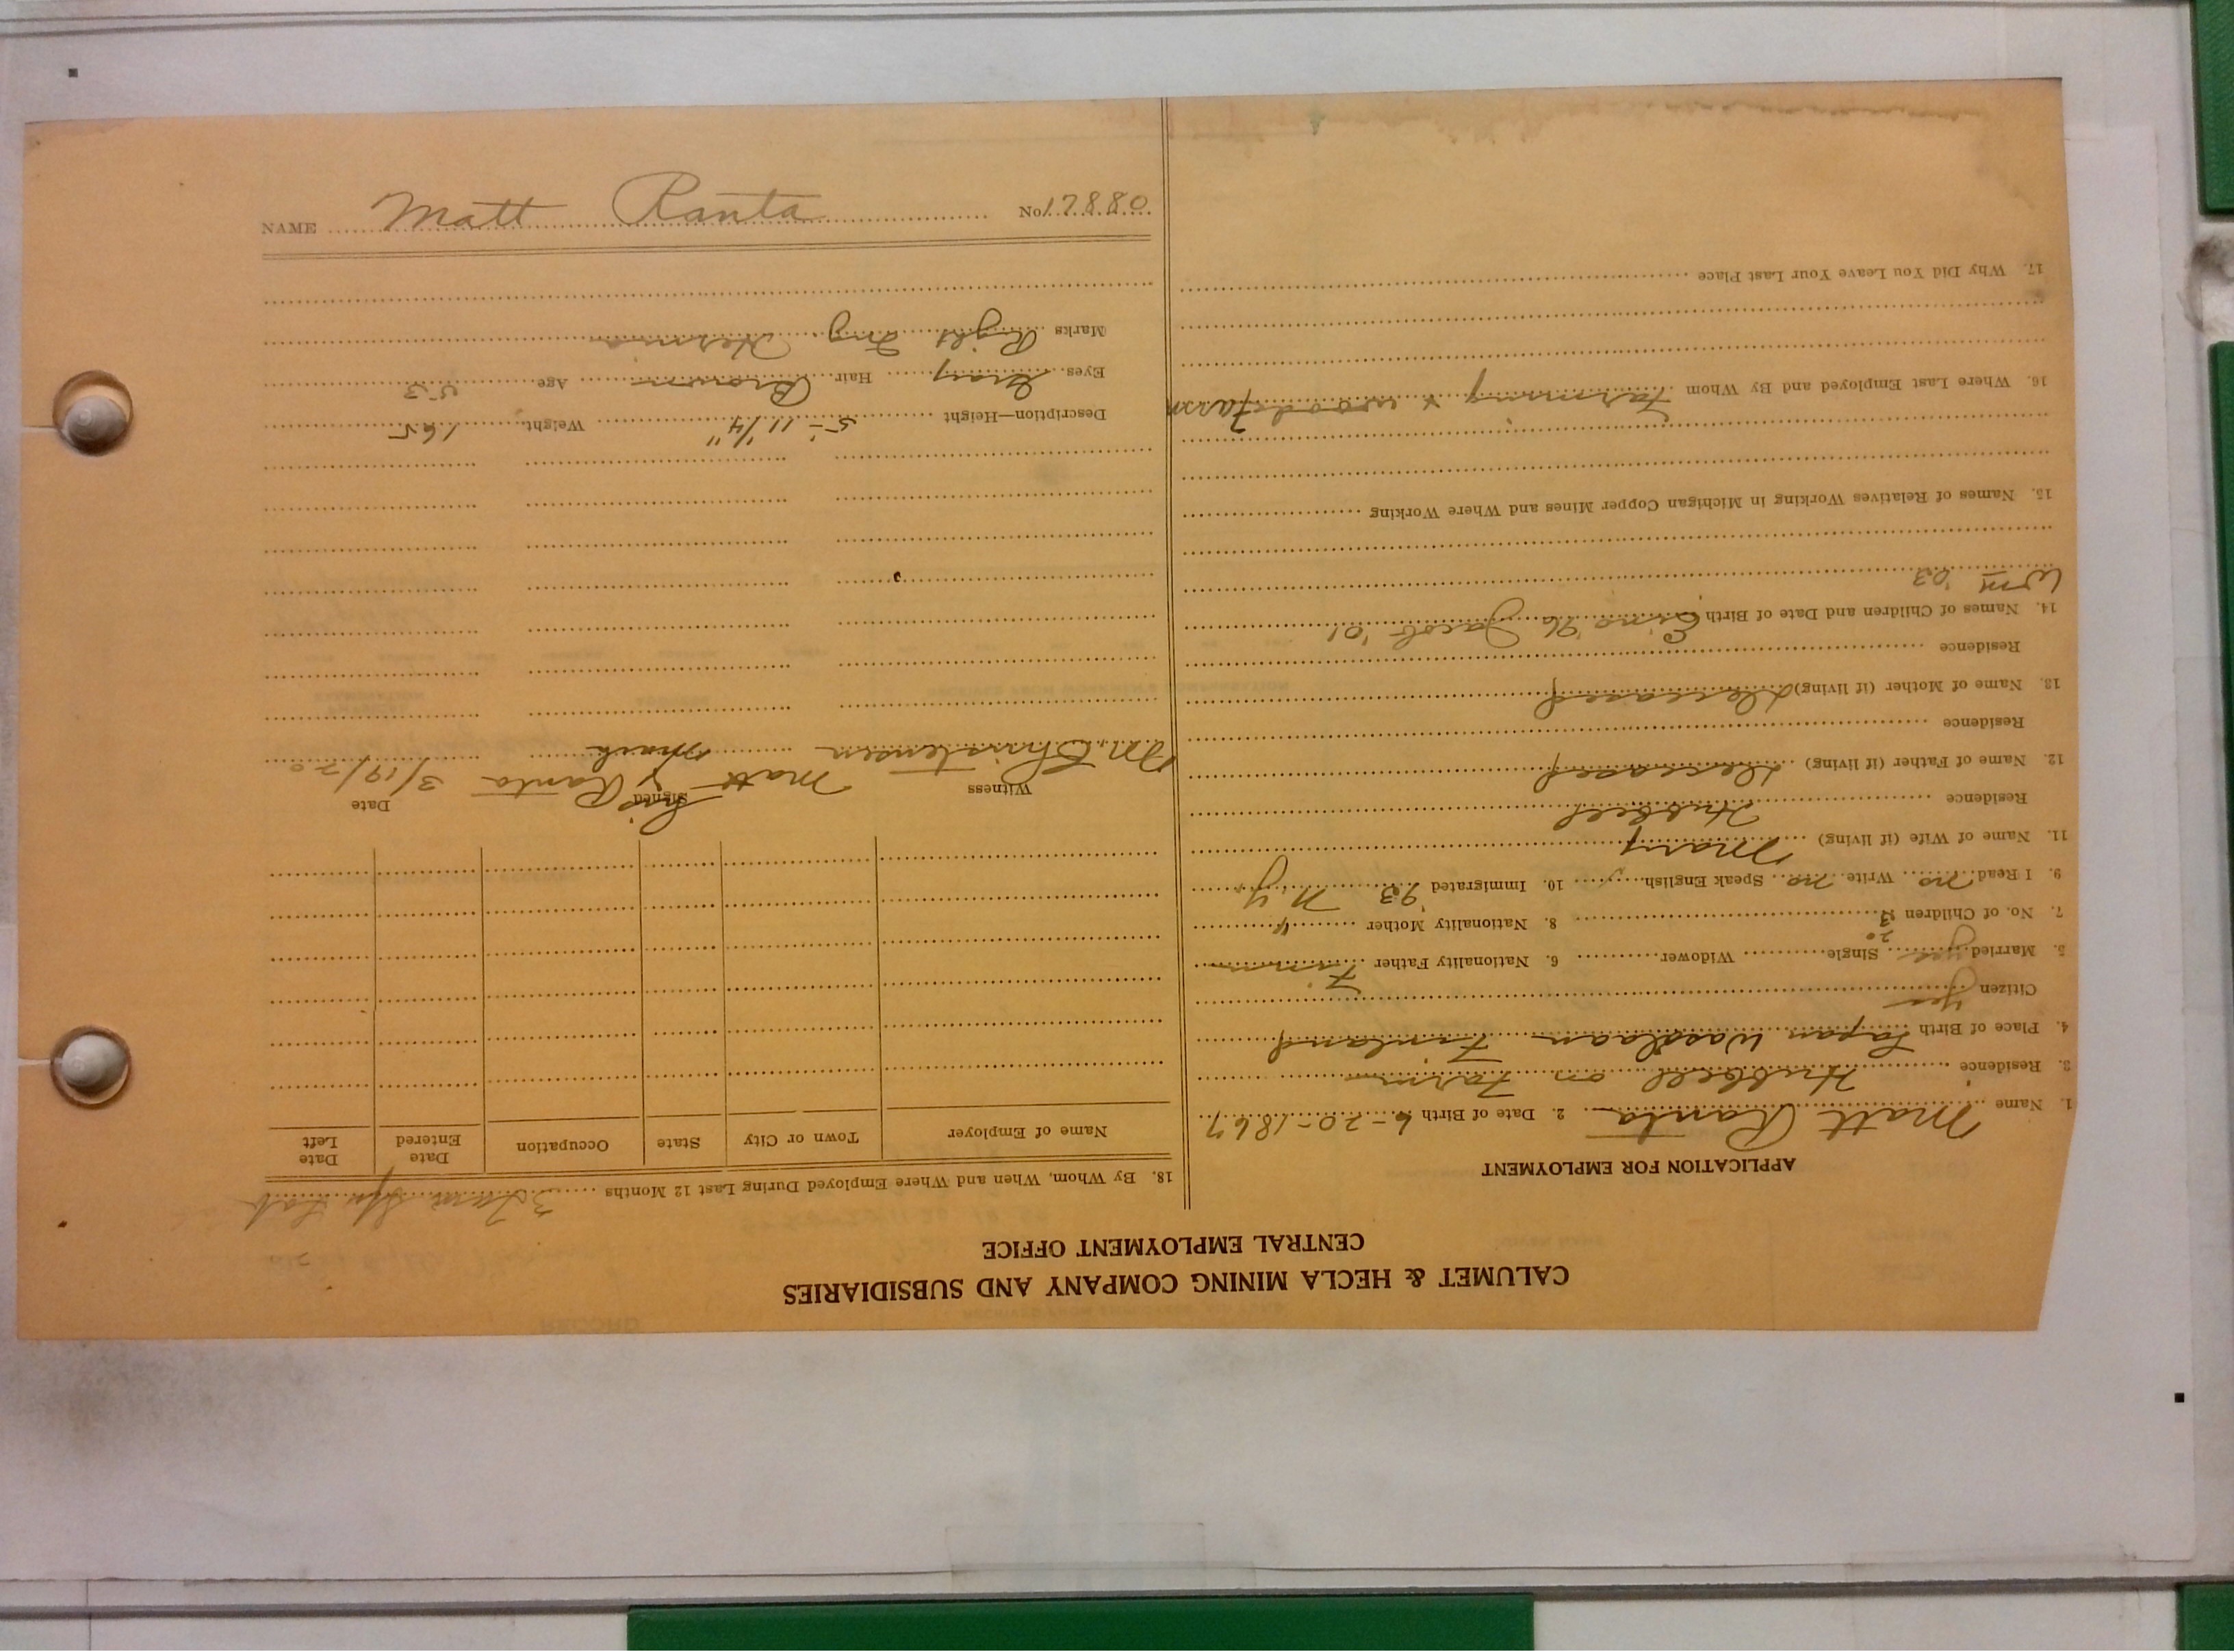 NAME Matt Ranta No. 17880
CALUMET & HECLA MINING COMPANY AND SUBSIDIARIES
CENTRAL EMPLOYMENT OFFICE
APPLICATION FOR EMPLOYMENT
1. Name Matt Ranta 2. Date of Birth 6-20-1867
3. Residence Hubbell on Farm
4. Place of Birth Lapan Wasalaan Finland
Citizen Yes
5. Married yes 20 Single Widower 6. Nationality Father Finn
7. No. of Children 3 8. Nationality Mother "
9. I Read no Write no Speak English y 10. Immigrated '93 N.Y.
11. Name of Wife (if living) Mary
Residence Hubbell
12. Name of Father (if living) deceased
Residence
13. Name of Mother (if living) deceased
Residence
14. Names of Children and Date of Birth Eino '96 Jacob '01
Wm '03
15. Names of Relatives Working in Michigan Copper Mines and Where Working
16. Where Last Employed and By Whom Farming & woods Farm
17. Why Did You Leave Your Last Place
18. By Whom, When and Where Employed During Last 12 Months
Name of Employer Town or City State Occupation Date Entered Date Left
Witness Signed Date
Matt his Ranta 3/19/20
M. Christensen mark
Description—Height 5-11 1/4" Weight 165
Eyes Gray Hair Brown Age 53
Marks Right Ing. Hernia